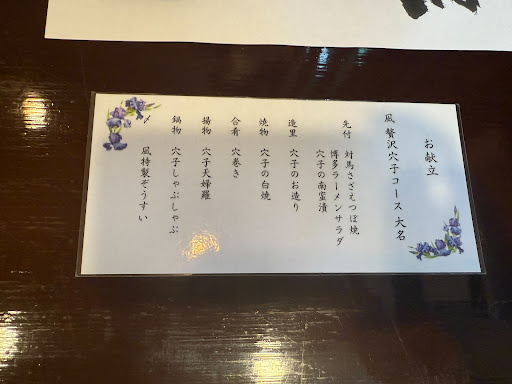 お献立
凪 贅沢穴子コース 大名
先付 対馬さざえつぼ焼
博多ラーメンサラダ
穴子の南蛮漬
造里 穴子のお造り
焼物 穴子の白焼
合肴 穴巻き
揚物 穴子天婦羅
鍋物 穴子しゃぶしゃぶ
凪特製ぞうすい